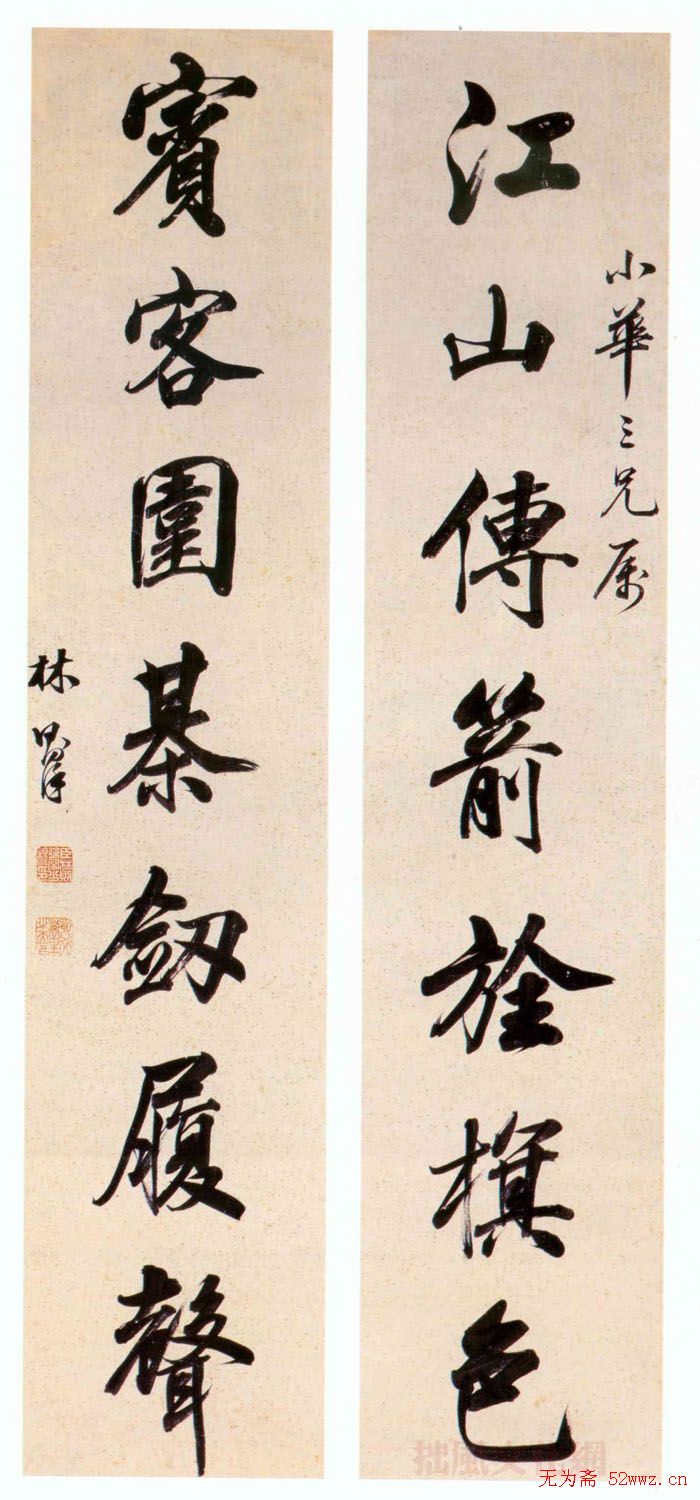 小華三兄属
江山傳箭旌旗色
賓客圍棊劔履聲
林則徐
无为斋 52wwz.cn